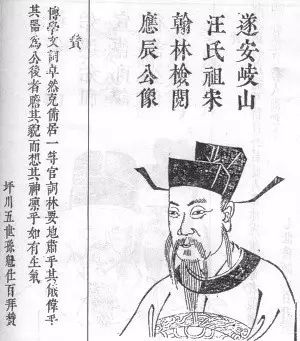 遂安岐山
汪氏祖宋
翰林檢閱
應辰公像
贊
博學文詞卓然克備居一等官詞林要地肅乎其儀偉乎
其器為公後者瞻其貌而想其神凛乎如有生氣
坪川五世孫 仕百拜贊